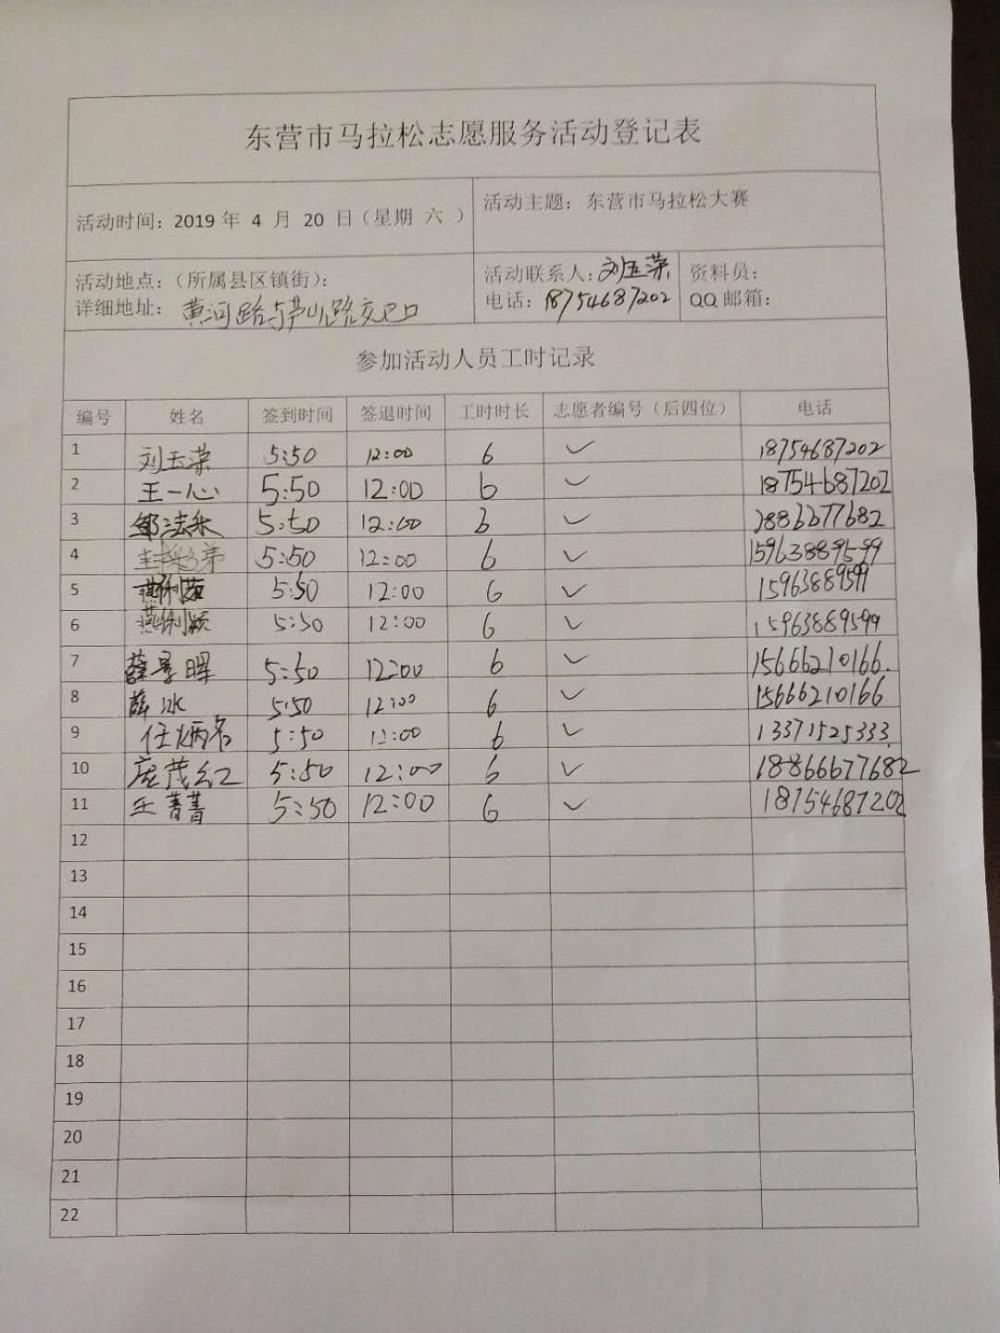 东营市马拉松志愿服务活动登记表
活动时间：2019 年 4 月 20 日（星期 六 ）
活动主题：东营市马拉松大赛
活动地点：（所属县区镇街）：
详细地址： 黄河路与庐山路交叉口
活动联系人：刘玉荣
电话：18754687202
资料员：
QQ 邮箱：
参加活动人员工时记录
编号 姓名 签到时间 签退时间 工时时长 志愿者编号（后四位） 电话
1 刘玉荣 5:50 12:00 6 ✓ 18754687202
2 王一心 5:50 12:00 6 ✓ 18754687202
3 5:50 12:00 6 ✓
4 5:50 12:00 6 ✓ 15963889599
5 5:50 12:00 6 ✓ 15963889599
6 燕俐颖 5:50 12:00 6 ✓ 15963889599
7 薛景晖 5:50 12:00 6 ✓ 15666210166
8 薛冰 5:50 12:00 6 ✓ 15666210166
9 任炳名 5:50 12:00 6 ✓ 13371525333
10 庞茂红 5:50 12:00 6 ✓ 18866677682
11 王菁菁 5:50 12:00 6 ✓ 18754687202
12
13
14
15
16
17
18
19
20
21
22